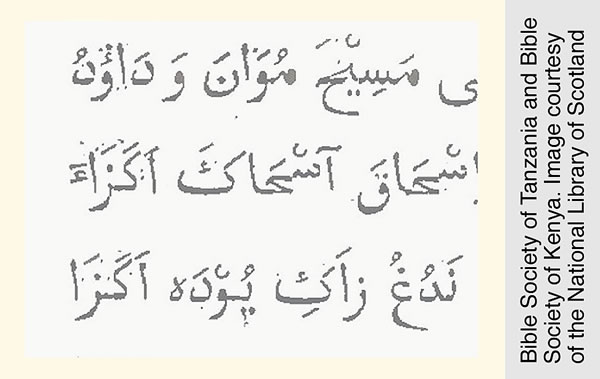 ى مَسِيْحَ مُوَانَ وَ دَاؤُدُ
اِسْحَاقَ آسْحَاكَ أَكَزَاءَ
نَدُغُ زَاكِ يُوْدَه أَكَزَا
Bible Society of Tanzania and Bible
Society of Kenya. Image courtesy
of the National Library of Scotland